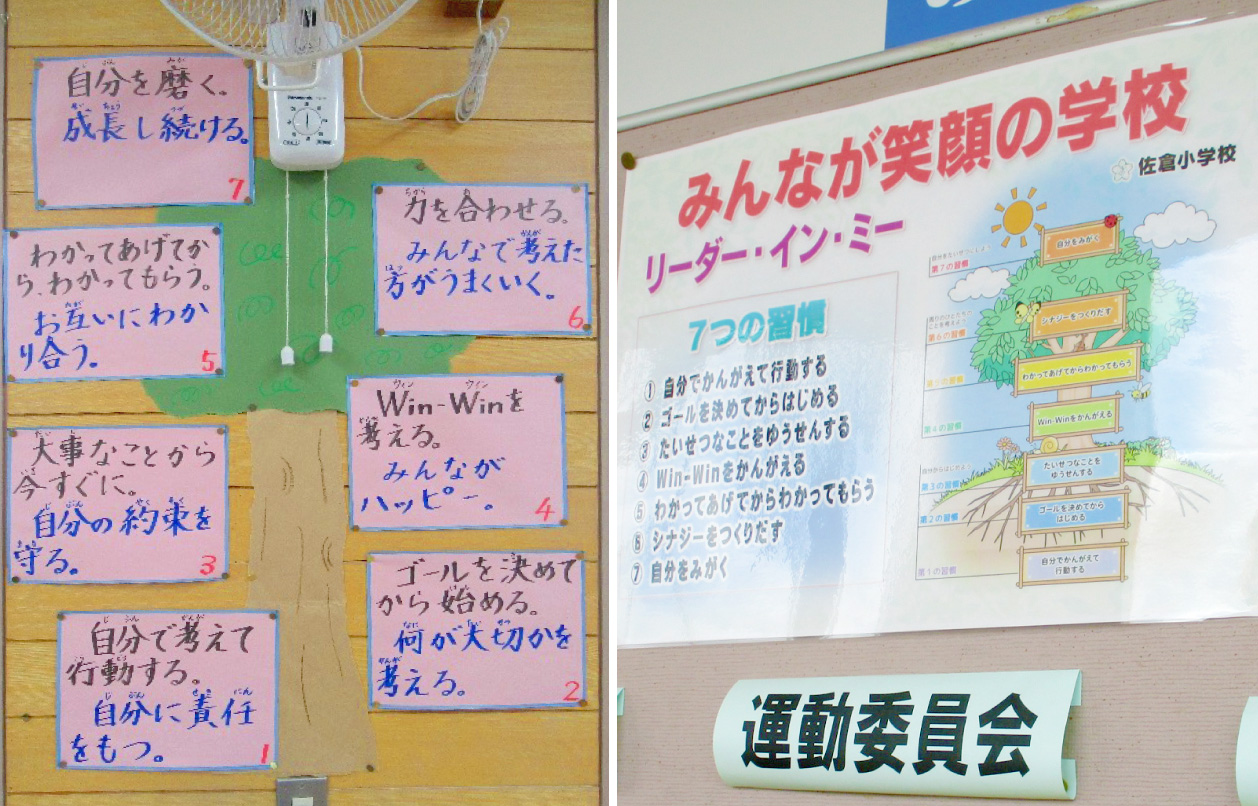 自分を磨く。
成長し続ける。
7
力を合わせる。
みんなで考えた
方がうまくいく。
6
わかってあげてか
ら、わかってもらう。
お互いにわか
り合う。
5
Win-Winを
考える。
みんなが
ハッピー。
4
大事なことから
今すぐに。
自分の約束を
守る。
3
ゴールを決めて
から始める。
何が大切かを
考える。
2
自分で考えて
行動する。
自分に責任
をもつ。
1
みんなが笑顔の学校
佐倉小学校
リーダー・イン・ミー
7つの習慣
① 自分でかんがえて行動する
② ゴールを決めてからはじめる
③ たいせつなことをゆうせんする
④ Win-Winをかんがえる
⑤ わかってあげてからわかってもらう
⑥ シナジーをつくりだす
⑦ 自分をみがく
自分をみがく
第7の習慣
シナジーをつくりだす
第6の習慣
わかってあげてからわかってもらう
Win-Winをかんがえる
第4の習慣
たいせつなことを
ゆうせんする
第3の習慣
ゴールを決めてから
はじめる
第2の習慣
自分でかんがえて
行動する
第1の習慣
運動委員会